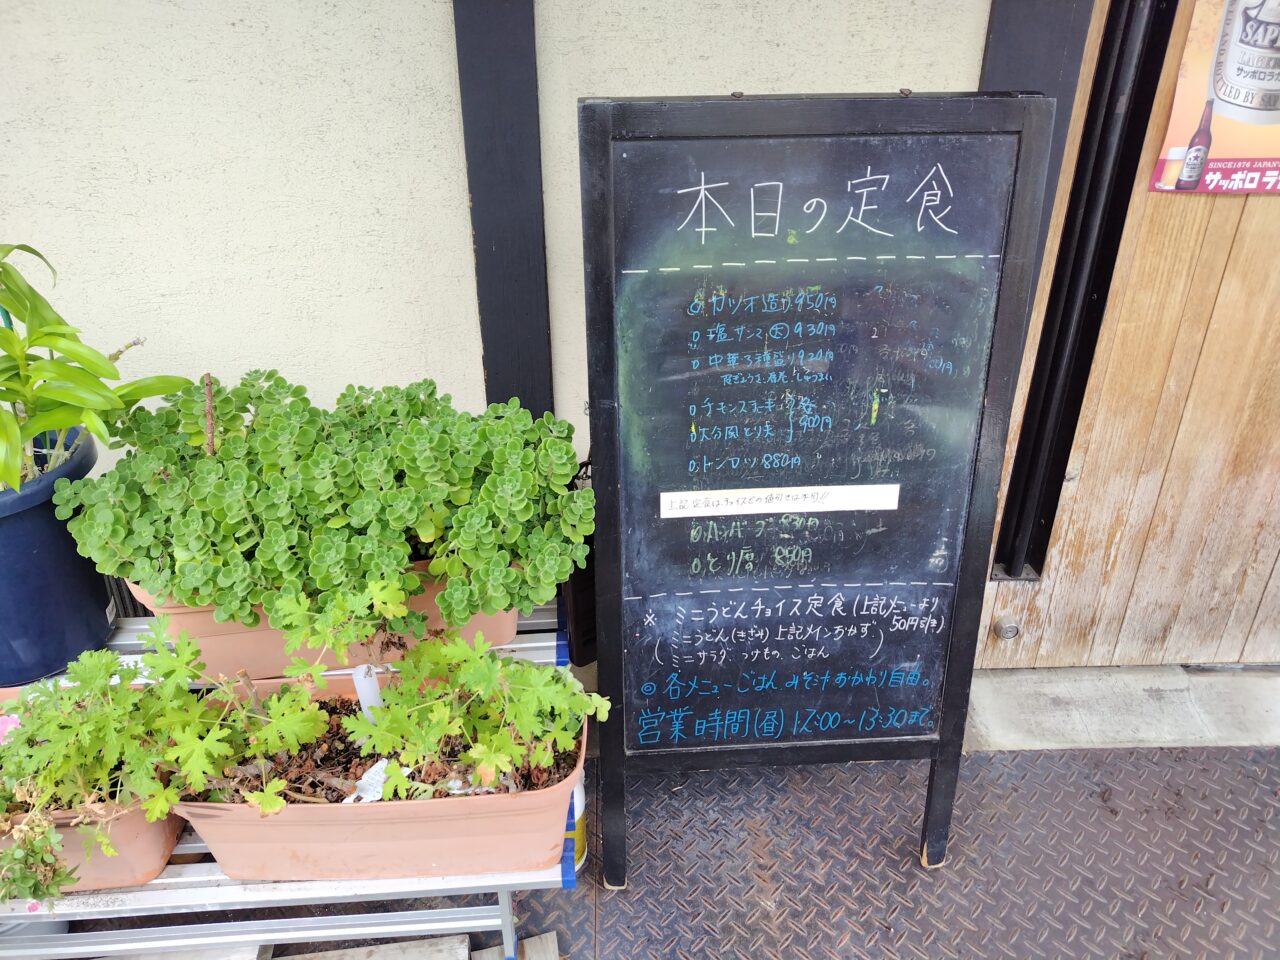 本日の定食
◎カツオ造り950円
○塩サンマ(大)930円
○中華3種盛り920円
春巻、しゅうまい
○チキンステーキ
○大分風とり天 900円
○トンカツ880円
上記定食はチョイスでの値引きは不可!!
○ハンバーグ 830円
○とり唐 850円
※ミニうどんチョイス定食(上記メニューより50円引き)
(ミニうどん(きざみ)上記メインおかず、
ミニサラダ、つけもの、ごはん)
◎各メニューごはん、みそ汁おかわり自由。
営業時間(昼)12:00〜13:30まで。
サッポロラガ
SINCE 1876 JAPAN'
サッポロラ